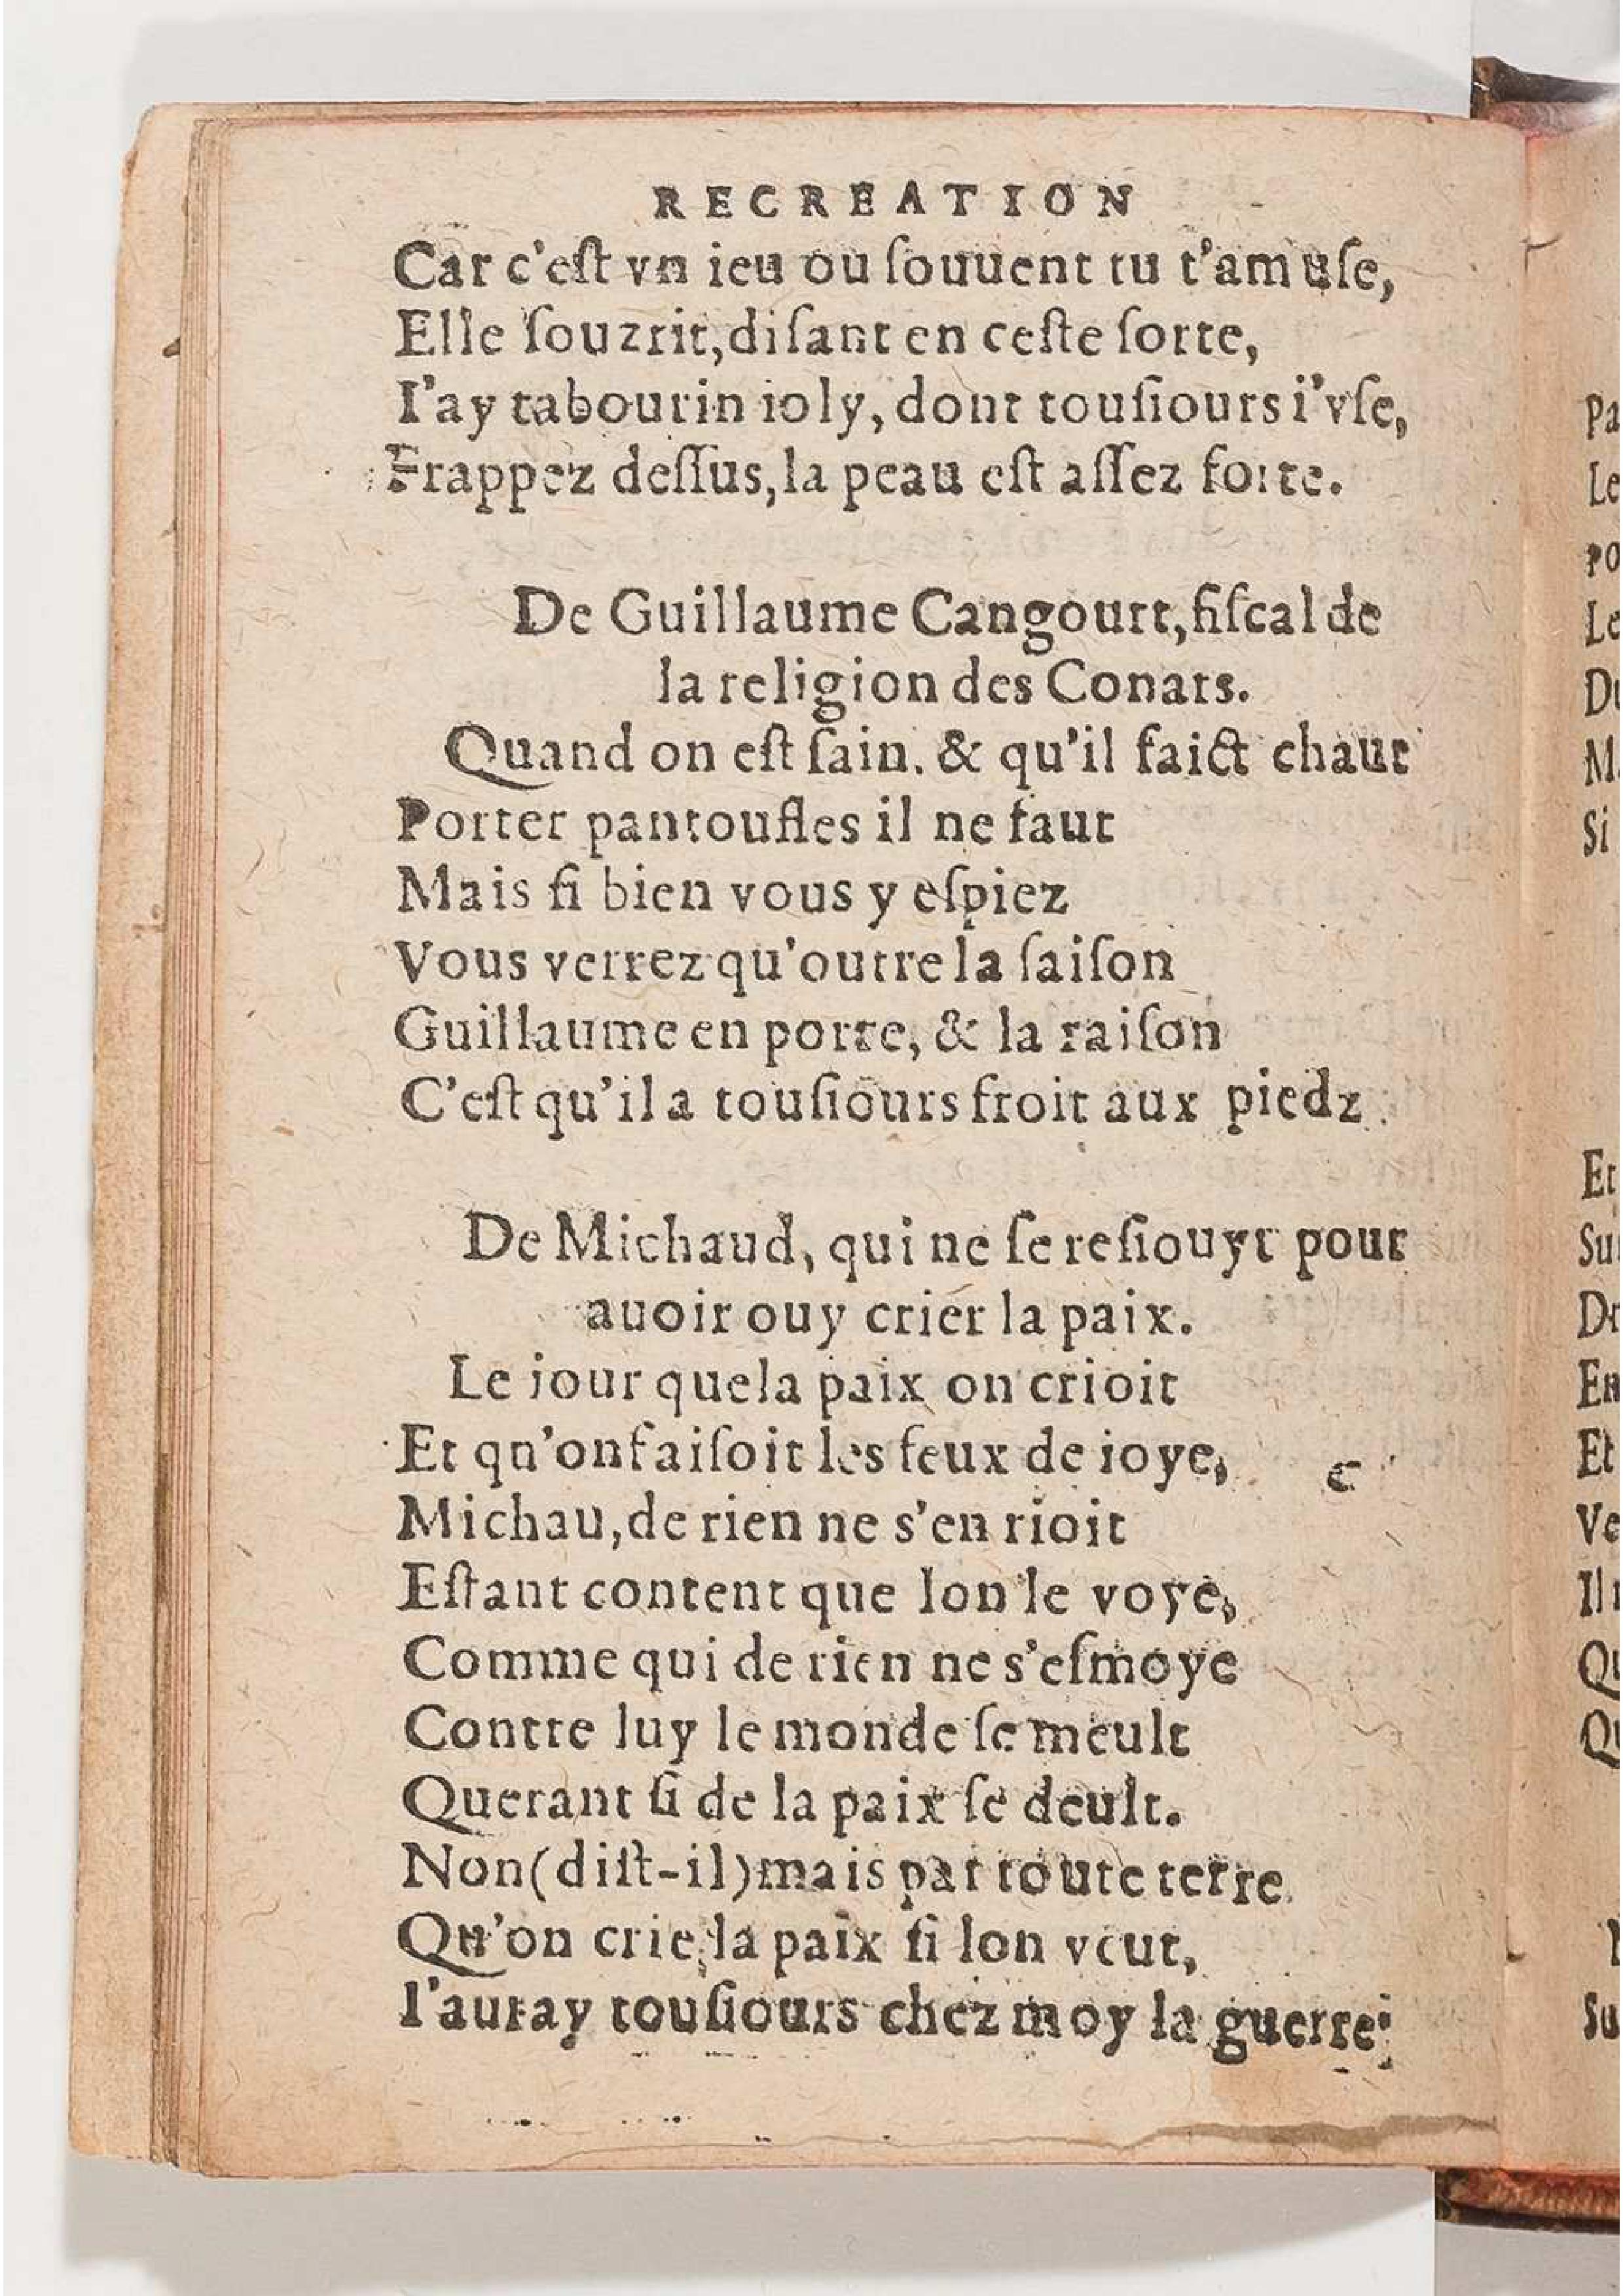 RECREATION
Car c'eſt vn ieu ou ſouuent tu t'amuſe,
Elle ſouzrit, diſant en ceſte ſorte,
I'ay tabourin ioly, dont touſiours i'vſe,
Frappez deſſus, la peau eſt aſſez forte.
De Guillaume Cangourt, fiſcal de
la religion des Conars.
Quand on eſt ſain. & qu'il faict chaut
Porter pantoufles il ne faut
Mais ſi bien vous y eſpiez
Vous verrez qu'outre la ſaiſon
Guillaume en porte, & la raiſon
C'eſt qu'il a touſiours froit aux piedz.
De Michaud, qui ne ſe reſiouyt pour
auoir ouy crier la paix.
Le iour que la paix on crioit
Et qu'on faiſoit les feux de ioye,
Michau, de rien ne s'en rioit
Eſtant content que lon le voye,
Comme qui de rien ne s'eſmoye
Contre luy le monde ſe meult
Querant ſi de la paix ſe deult.
Non (diſt-il) mais par toute terre.
Qu'on crie la paix ſi lon veut,
I'auray touſiours chez moy la guerre:
Pa
Le
Po
Le
Du
Ma
Si
Et
Su
Dr
En
Et
Ve
Il
Qu
Qu
Su